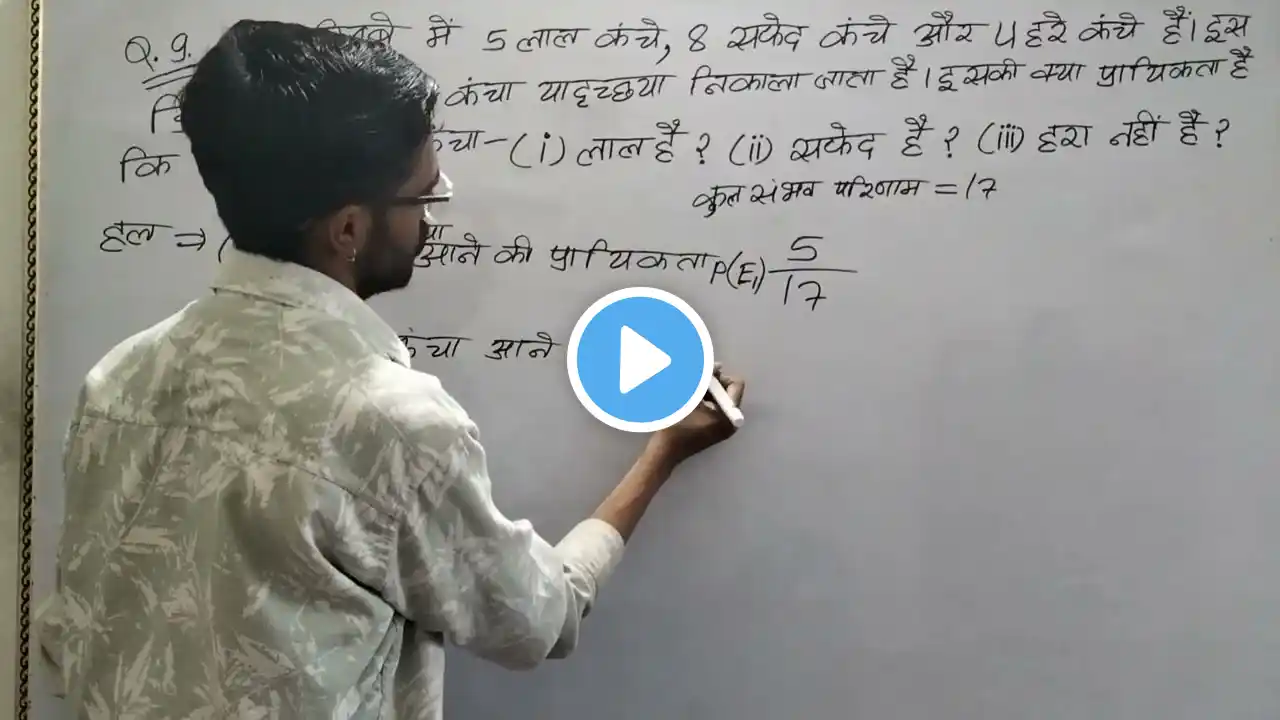 Q. 9. में 5 लाल कंचे, 8 सफेद कंचे और 4 हरे कंचे हैं। इस
कंचा यादृच्छया निकाला जाता है। इसकी क्या प्रायिकता है
कि कंचा - (i) लाल है ? (ii) सफेद है ? (iii) हरा नहीं है ?
कुल संभव परिणाम = 17
हल ⇒ आने की प्रायिकता P(E₁) 5/17
कंचा आने